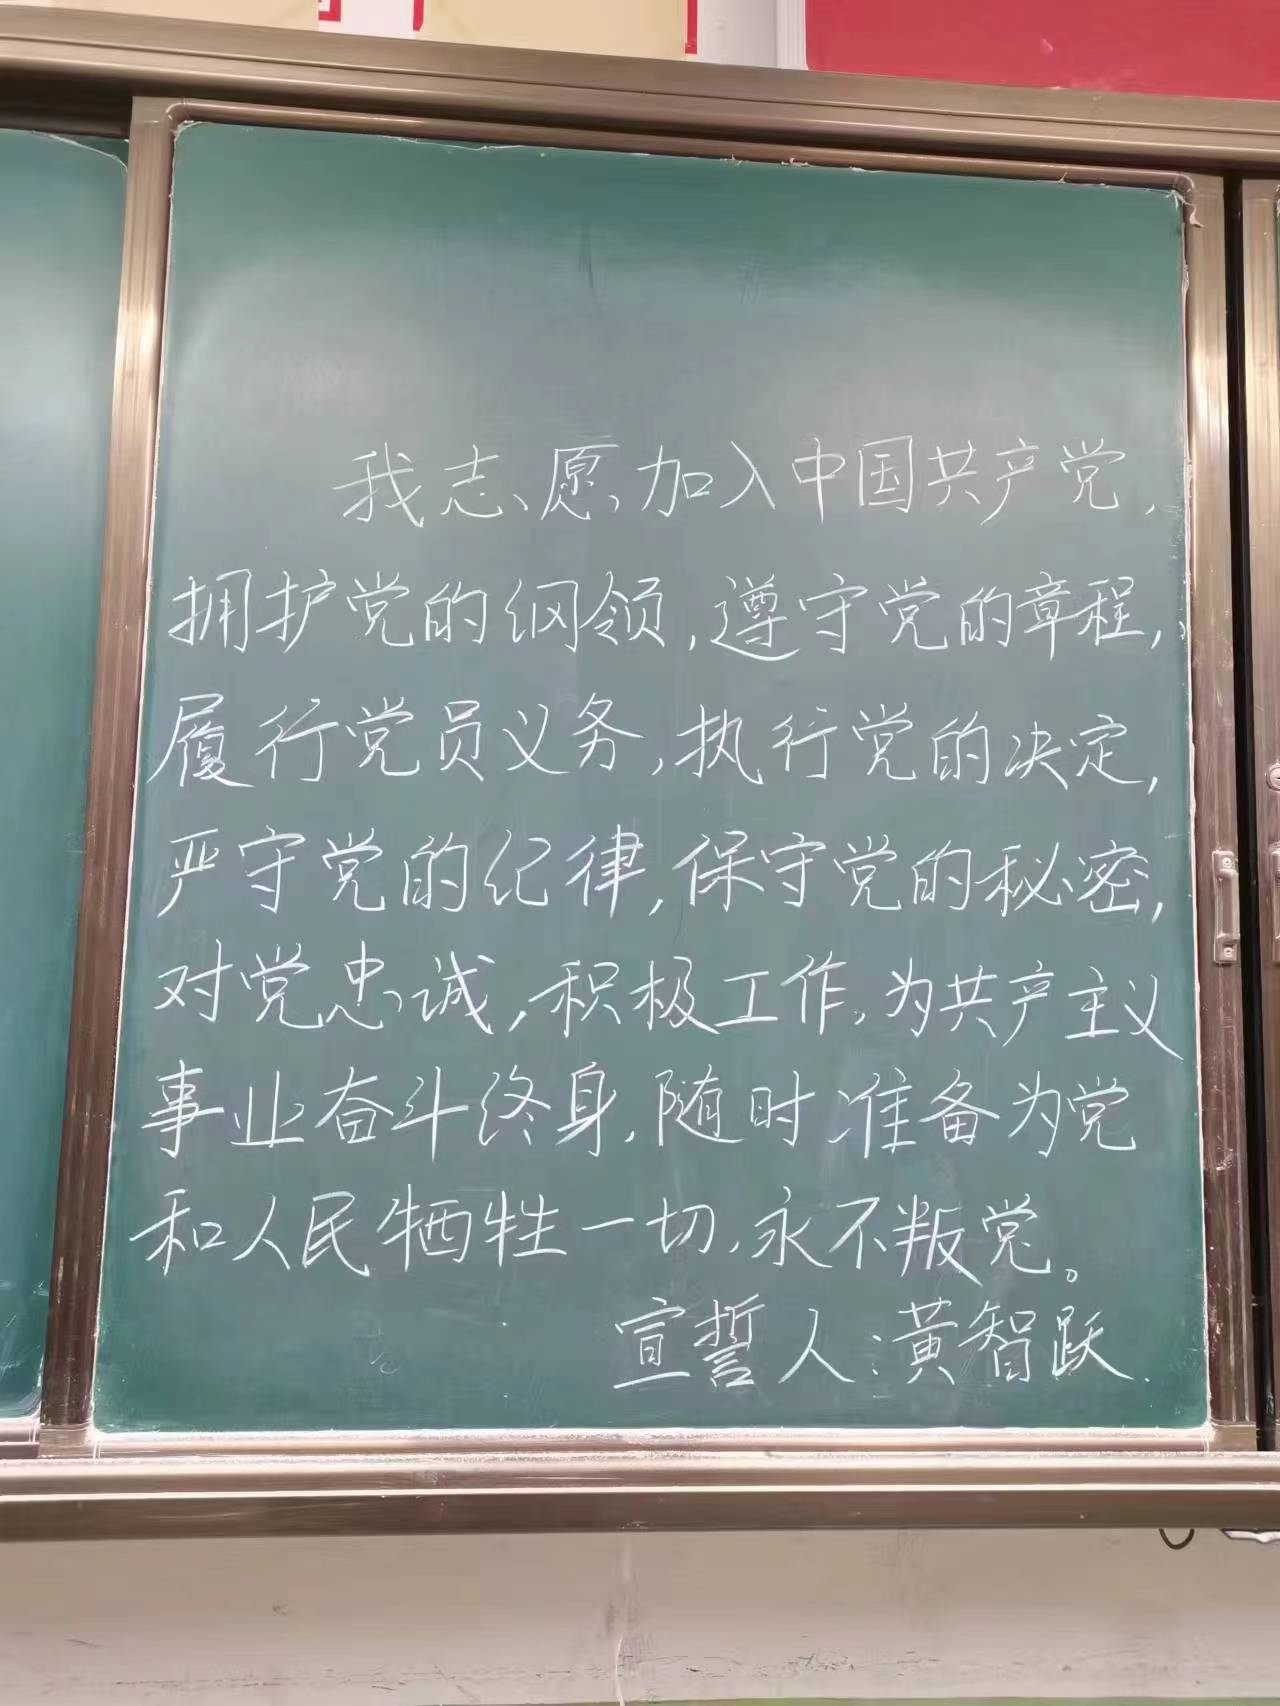 我志愿加入中国共产党，
拥护党的纲领，遵守党的章程，
履行党员义务，执行党的决定，
严守党的纪律，保守党的秘密，
对党忠诚，积极工作，为共产主义
事业奋斗终身，随时准备为党
和人民牺牲一切，永不叛党。
宣誓人：黄智跃.